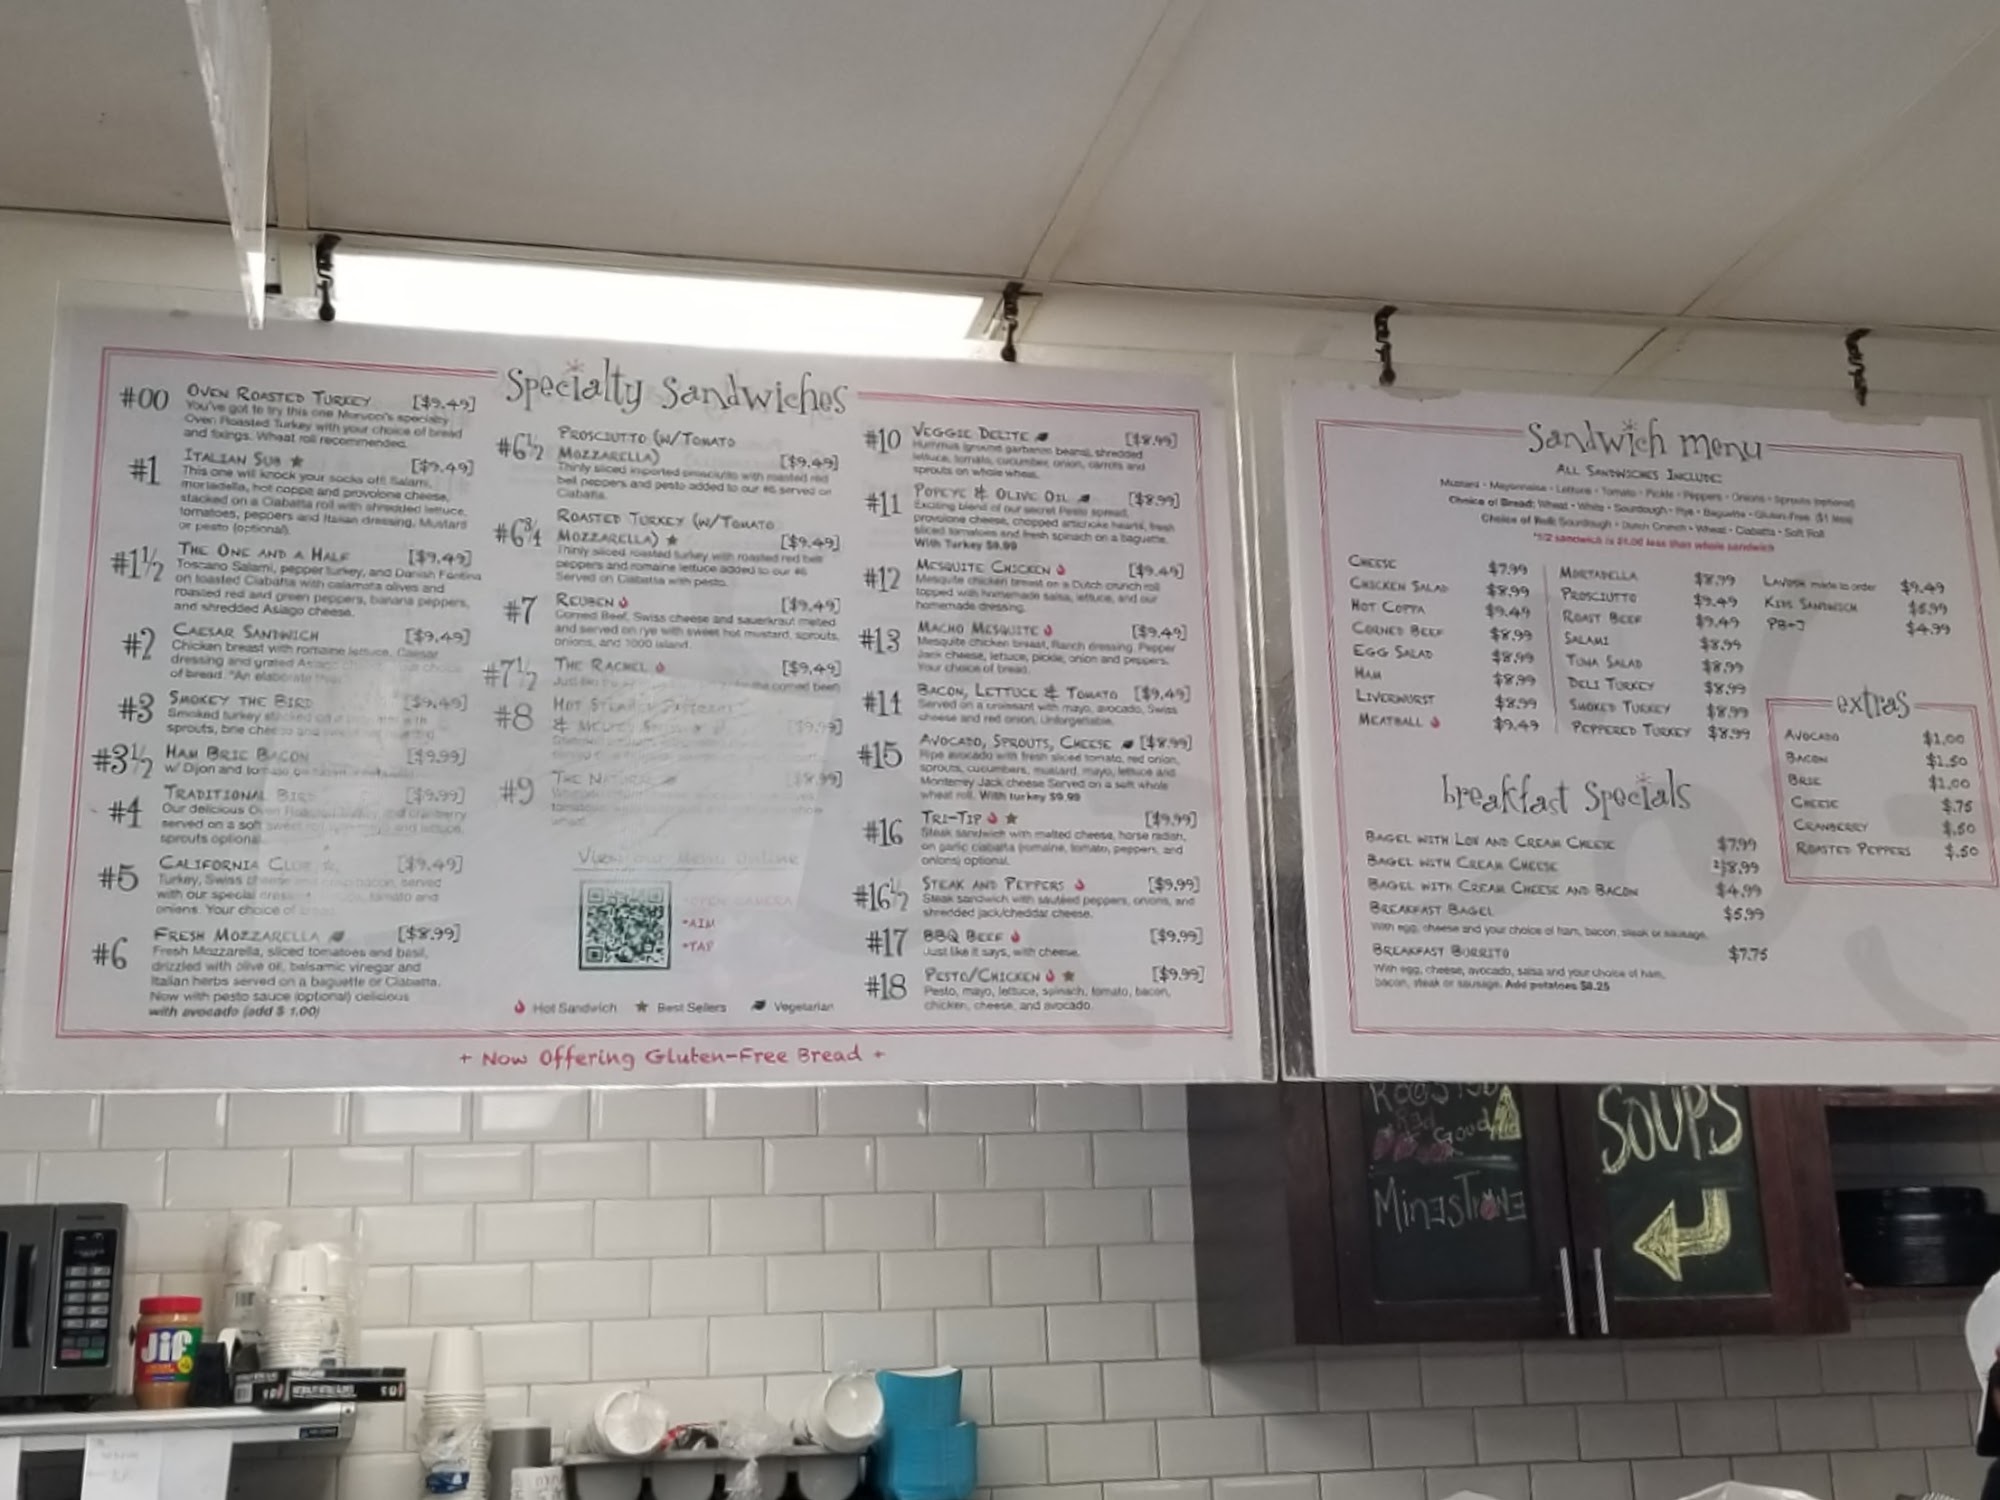 Specialty Sandwiches
#00 OVEN ROASTED TURKEY [$9.49]
You've got to try this one Morucci's specialty
Oven Roasted Turkey with your choice of bread
and fixings. Wheat roll recommended.
#1 ITALIAN SUB ★ [$9.49]
This one will knock your socks off! Salami,
mortadella, hot coppa and provolone cheese,
stacked on a Ciabatta roll with shredded lettuce,
tomatoes, peppers and Italian dressing, Mustard
or pesto (optional).
#1½ THE ONE AND A HALF [$9.49]
Toscano Salami, pepper turkey, and Danish Fontina
on toasted Ciabatta with calamata olives and
roasted red and green peppers, banana peppers,
and shredded Asiago cheese.
#2 CAESAR SANDWICH [$9.49]
Chicken breast with romaine lettuce, Caesar
dressing and grated Asiago cheese. Your choice
of bread. "An elaborate
#3 SMOKEY THE BIRD [$9.49]
Smoked turkey stacked on a with
sprouts, brie cheese and
#3½ HAM BRIE BACON [$9.99]
w/ Dijon and tomato
#4 TRADITIONAL BIRD [$9.99]
Our delicious Oven Roasted Turkey and cranberry
served on a soft sweet roll, and lettuce,
sprouts optional.
#5 CALIFORNIA CLUB ★ [$9.49]
Turkey, Swiss cheese and crisp bacon, served
with our special dressing, tomato and
onions. Your choice of bread.
#6 FRESH MOZZARELLA [$8.99]
Fresh Mozzarella, sliced tomatoes and basil,
drizzled with olive oil, balsamic vinegar and
Italian herbs served on a baguette or Ciabatta.
Now with pesto sauce (optional) delicious
with avocado (add $ 1.00)
#6½ PROSCIUTTO (W/TOMATO
MOZZARELLA) [$9.49]
Thinly sliced imported prosciutto with roasted red
bell peppers and pesto added to our #6 served on
Ciabatta.
#6¾ ROASTED TURKEY (W/TOMATO
MOZZARELLA) ★ [$9.49]
Thinly sliced roasted turkey with roasted red bell
peppers and romaine lettuce added to our #6
Served on Ciabatta with pesto.
#7 REUBEN [$9.49]
Corned Beef, Swiss cheese and sauerkraut melted
and served on rye with sweet hot mustard, sprouts,
onions, and 1000 island.
#7½ THE RACHEL [$9.49]
Just like the the corned beef
#8 HOT STEAMY PASTRAMI
& MELTED SWISS [$9.99]
#9 THE NATURAL [$8.99]
View Our Menu Online
•OPEN CAMERA
•AIM
•TAP
Hot Sandwich ★ Best Sellers Vegetarian
#10 VEGGIE DELITE [$8.99]
Hummus (ground garbanzo beans), shredded
lettuce, tomato, cucumber, onion, carrots and
sprouts on whole wheat.
#11 POPEYE & OLIVE OIL [$8.99]
Exciting blend of our secret Pesto spread,
provolone cheese, chopped artichoke hearts, fresh
sliced tomatoes and fresh spinach on a baguette.
With Turkey $9.99
#12 MESQUITE CHICKEN [$9.49]
Mesquite chicken breast on a Dutch crunch roll
topped with homemade salsa, lettuce, and our
homemade dressing.
#13 MACHO MESQUITE [$9.49]
Mesquite chicken breast, Ranch dressing, Pepper
Jack cheese, lettuce, pickle, onion and peppers.
Your choice of bread.
#14 BACON, LETTUCE & TOMATO [$9.49]
Served on a croissant with mayo, avocado, Swiss
cheese and red onion. Unforgettable.
#15 AVOCADO, SPROUTS, CHEESE [$8.99]
Ripe avocado with fresh sliced tomato, red onion,
sprouts, cucumbers, mustard, mayo, lettuce and
Monterrey Jack cheese Served on a soft whole
wheat roll. With turkey $9.99
#16 TRI-TIP ★ [$9.99]
Steak sandwich with melted cheese, horse radish,
on garlic ciabatta (romaine, tomato, peppers, and
onions) optional.
#16½ STEAK AND PEPPERS [$9.99]
Steak sandwich with sautéed peppers, onions, and
shredded jack/cheddar cheese.
#17 BBQ BEEF [$9.99]
Just like it says, with cheese.
#18 PESTO/CHICKEN ★ [$9.99]
Pesto, mayo, lettuce, spinach, tomato, bacon,
chicken, cheese, and avocado.
+ Now Offering Gluten-Free Bread +
Sandwich menu
ALL SANDWICHES INCLUDE:
Mustard • Mayonnaise • Lettuce • Tomato • Pickle • Peppers • Onions • Sprouts (optional)
Choice of Bread: Wheat • White • Sourdough • Rye • Baguette • Gluten-Free ($1 More)
Choice of Roll: Sourdough • Dutch Crunch • Wheat • Ciabatta • Soft Roll
*1/2 sandwich is $1.00 less than whole sandwich
CHEESE $7.99
CHICKEN SALAD $8.99
HOT COPPA $9.49
CORNED BEEF $8.99
EGG SALAD $8.99
HAM $8.99
LIVERWURST $8.99
MEATBALL $9.49
MORTADELLA $8.99
PROSCIUTTO $9.49
ROAST BEEF $9.49
SALAMI $8.99
TUNA SALAD $8.99
DELI TURKEY $8.99
SMOKED TURKEY $8.99
PEPPERED TURKEY $8.99
LAVOSH made to order $9.49
KIDS SANDWICH $5.99
PB+J $4.99
extras
AVOCADO $1.00
BACON $1.50
BRIE $1.00
CHEESE $.75
CRANBERRY $.50
ROASTED PEPPERS $.50
breakfast Specials
BAGEL WITH LOX AND CREAM CHEESE $7.99
BAGEL WITH CREAM CHEESE
BAGEL WITH CREAM CHEESE AND BACON $4.99
BREAKFAST BAGEL $5.99
With egg, cheese and your choice of ham, bacon, steak or sausage.
BREAKFAST BURRITO $7.75
With egg, cheese, avocado, salsa and your choice of ham,
bacon, steak or sausage. Add potatoes $8.25
Good
MINESTRONE
SOUPS
Jif